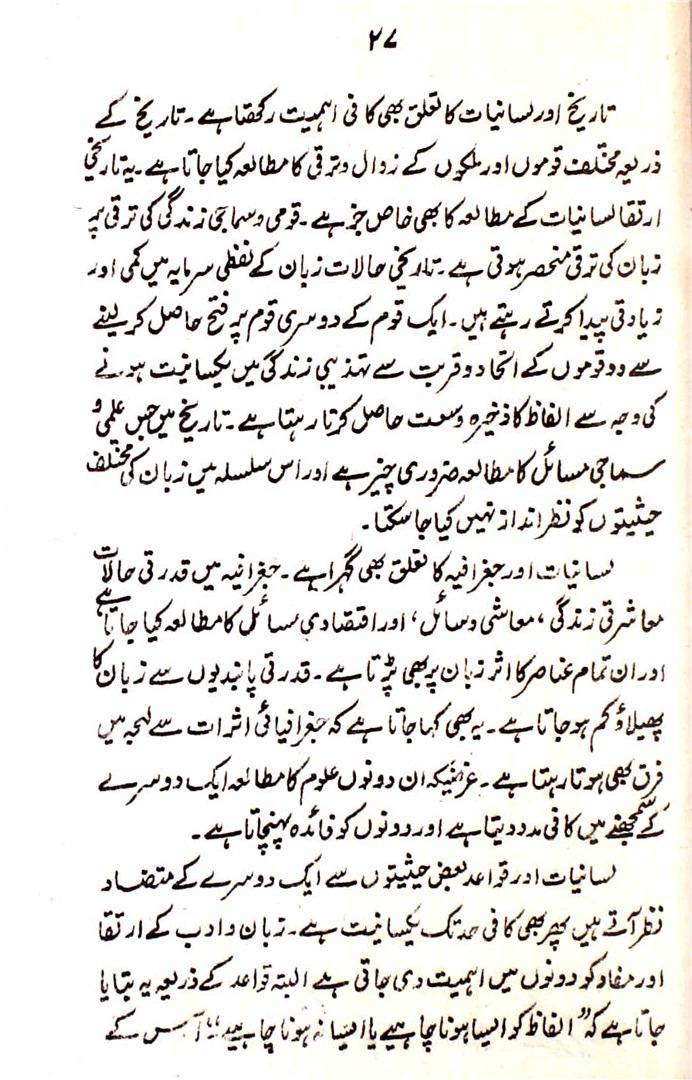 ۲۷
تاریخ اور لسانیات کا تعلق بھی کافی اہمیت رکھتا ہے۔ تاریخ کے
ذریعہ مختلف قوموں اور ملکوں کے زوال و ترقی کا مطالعہ کیا جاتا ہے۔ یہ تاریخی
ارتقا لسانیات کے مطالعہ کا بھی خاص جز ہے۔ قومی و سماجی زندگی کی ترقی پہ
زبان کی ترقی منحصر ہوتی ہے۔ تاریخی حالات زبان کے لفظی سرمایہ میں کمی اور
زیادتی پیدا کرتے رہتے ہیں۔ ایک قوم کے دوسری قوم پر فتح حاصل کر لینے
سے دو قوموں کے اتحاد و قربت سے تہذیبی زندگی میں یکسانیت ہونے
کی وجہ سے الفاظ کا ذخیرہ وسعت حاصل کرتا رہتا ہے۔ تاریخ میں جس علمی و
سماجی مسائل کا مطالعہ ضروری چیز ہے اور اس سلسلہ میں زبان کی مختلف
حیثیتوں کو نظر انداز نہیں کیا جا سکتا۔
لسانیات اور جغرافیہ کا تعلق بھی گہرا ہے۔ جغرافیہ میں قدرتی حالات
معاشرتی زندگی، معاشی وسائل، اور اقتصادی مسائل کا مطالعہ کیا جاتا ہے
اور ان تمام عناصر کا اثر زبان پر بھی پڑتا ہے۔ قدرتی پابندیوں سے زبان کا
پھیلاؤ کم ہو جاتا ہے۔ یہ بھی کہا جاتا ہے کہ جغرافیائی اثرات سے لہجہ میں
فرق بھی ہوتا رہتا ہے۔ غرضیکہ ان دونوں علوم کا مطالعہ ایک دوسرے
کے سمجھنے میں کافی مدد دیتا ہے اور دونوں کو فائدہ پہنچاتا ہے۔
لسانیات اور قواعد بعض حیثیتوں سے ایک دوسرے کے متضاد
نظر آتے ہیں پھر بھی کافی حد تک یکسانیت ہے۔ زبان و ادب کے ارتقا
اور مفاد کو دونوں میں اہمیت دی جاتی ہے البتہ قواعد کے ذریعہ یہ بتایا
جاتا ہے کہ ”الفاظ کو ایسا ہونا چاہیے یا ایسا نہ ہونا چاہیے“ اس کے